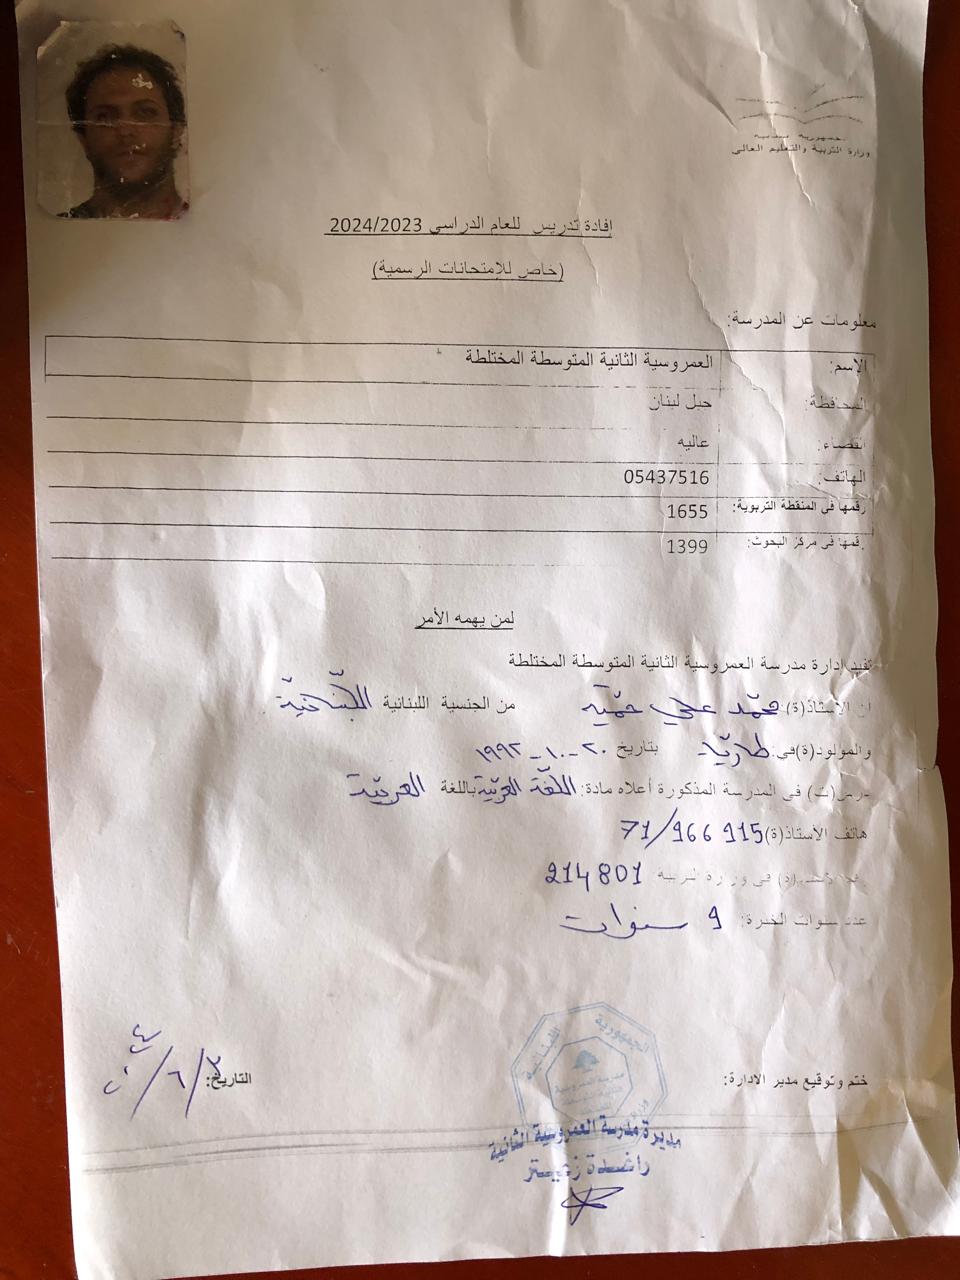 وزارة التربية والتعليم العالي
إفادة تدريس للعام الدراسي 2024/2023
(خاص للإمتحانات الرسمية)
معلومات عن المدرسة:
الإسم: العمروسية الثانية المتوسطة المختلطة
المحافظة: جبل لبنان
القضاء: عاليه
الهاتف: 05437516
رقمها في المنقطة التربوية: 1655
رقمها في مركز البحوث: 1399
لمن يهمه الأمر
تفيد ادارة مدرسة العمروسية الثانية المتوسطة المختلطة
ان الأستاذ(ة) محمّد علي حميّة من الجنسية اللبنانية اللّبنانيّة
والمولود(ة)في: طاريّا بتاريخ ٢٠-١٠-١٩٩٢
درس(ت) في المدرسة المذكورة أعلاه مادة: اللّغة العربيّة باللغة العربيّة
هاتف الأستاذ(ة) 71/966 915
في وزارة التربية 214801
عدد سنوات الخبرة: 9 سنوات
ختم وتوقيع مدير الادارة:
التاريخ:
الجمهورية اللبنانية
مديرة مدرسة العمروسية الثانية
راغدة زعيتر